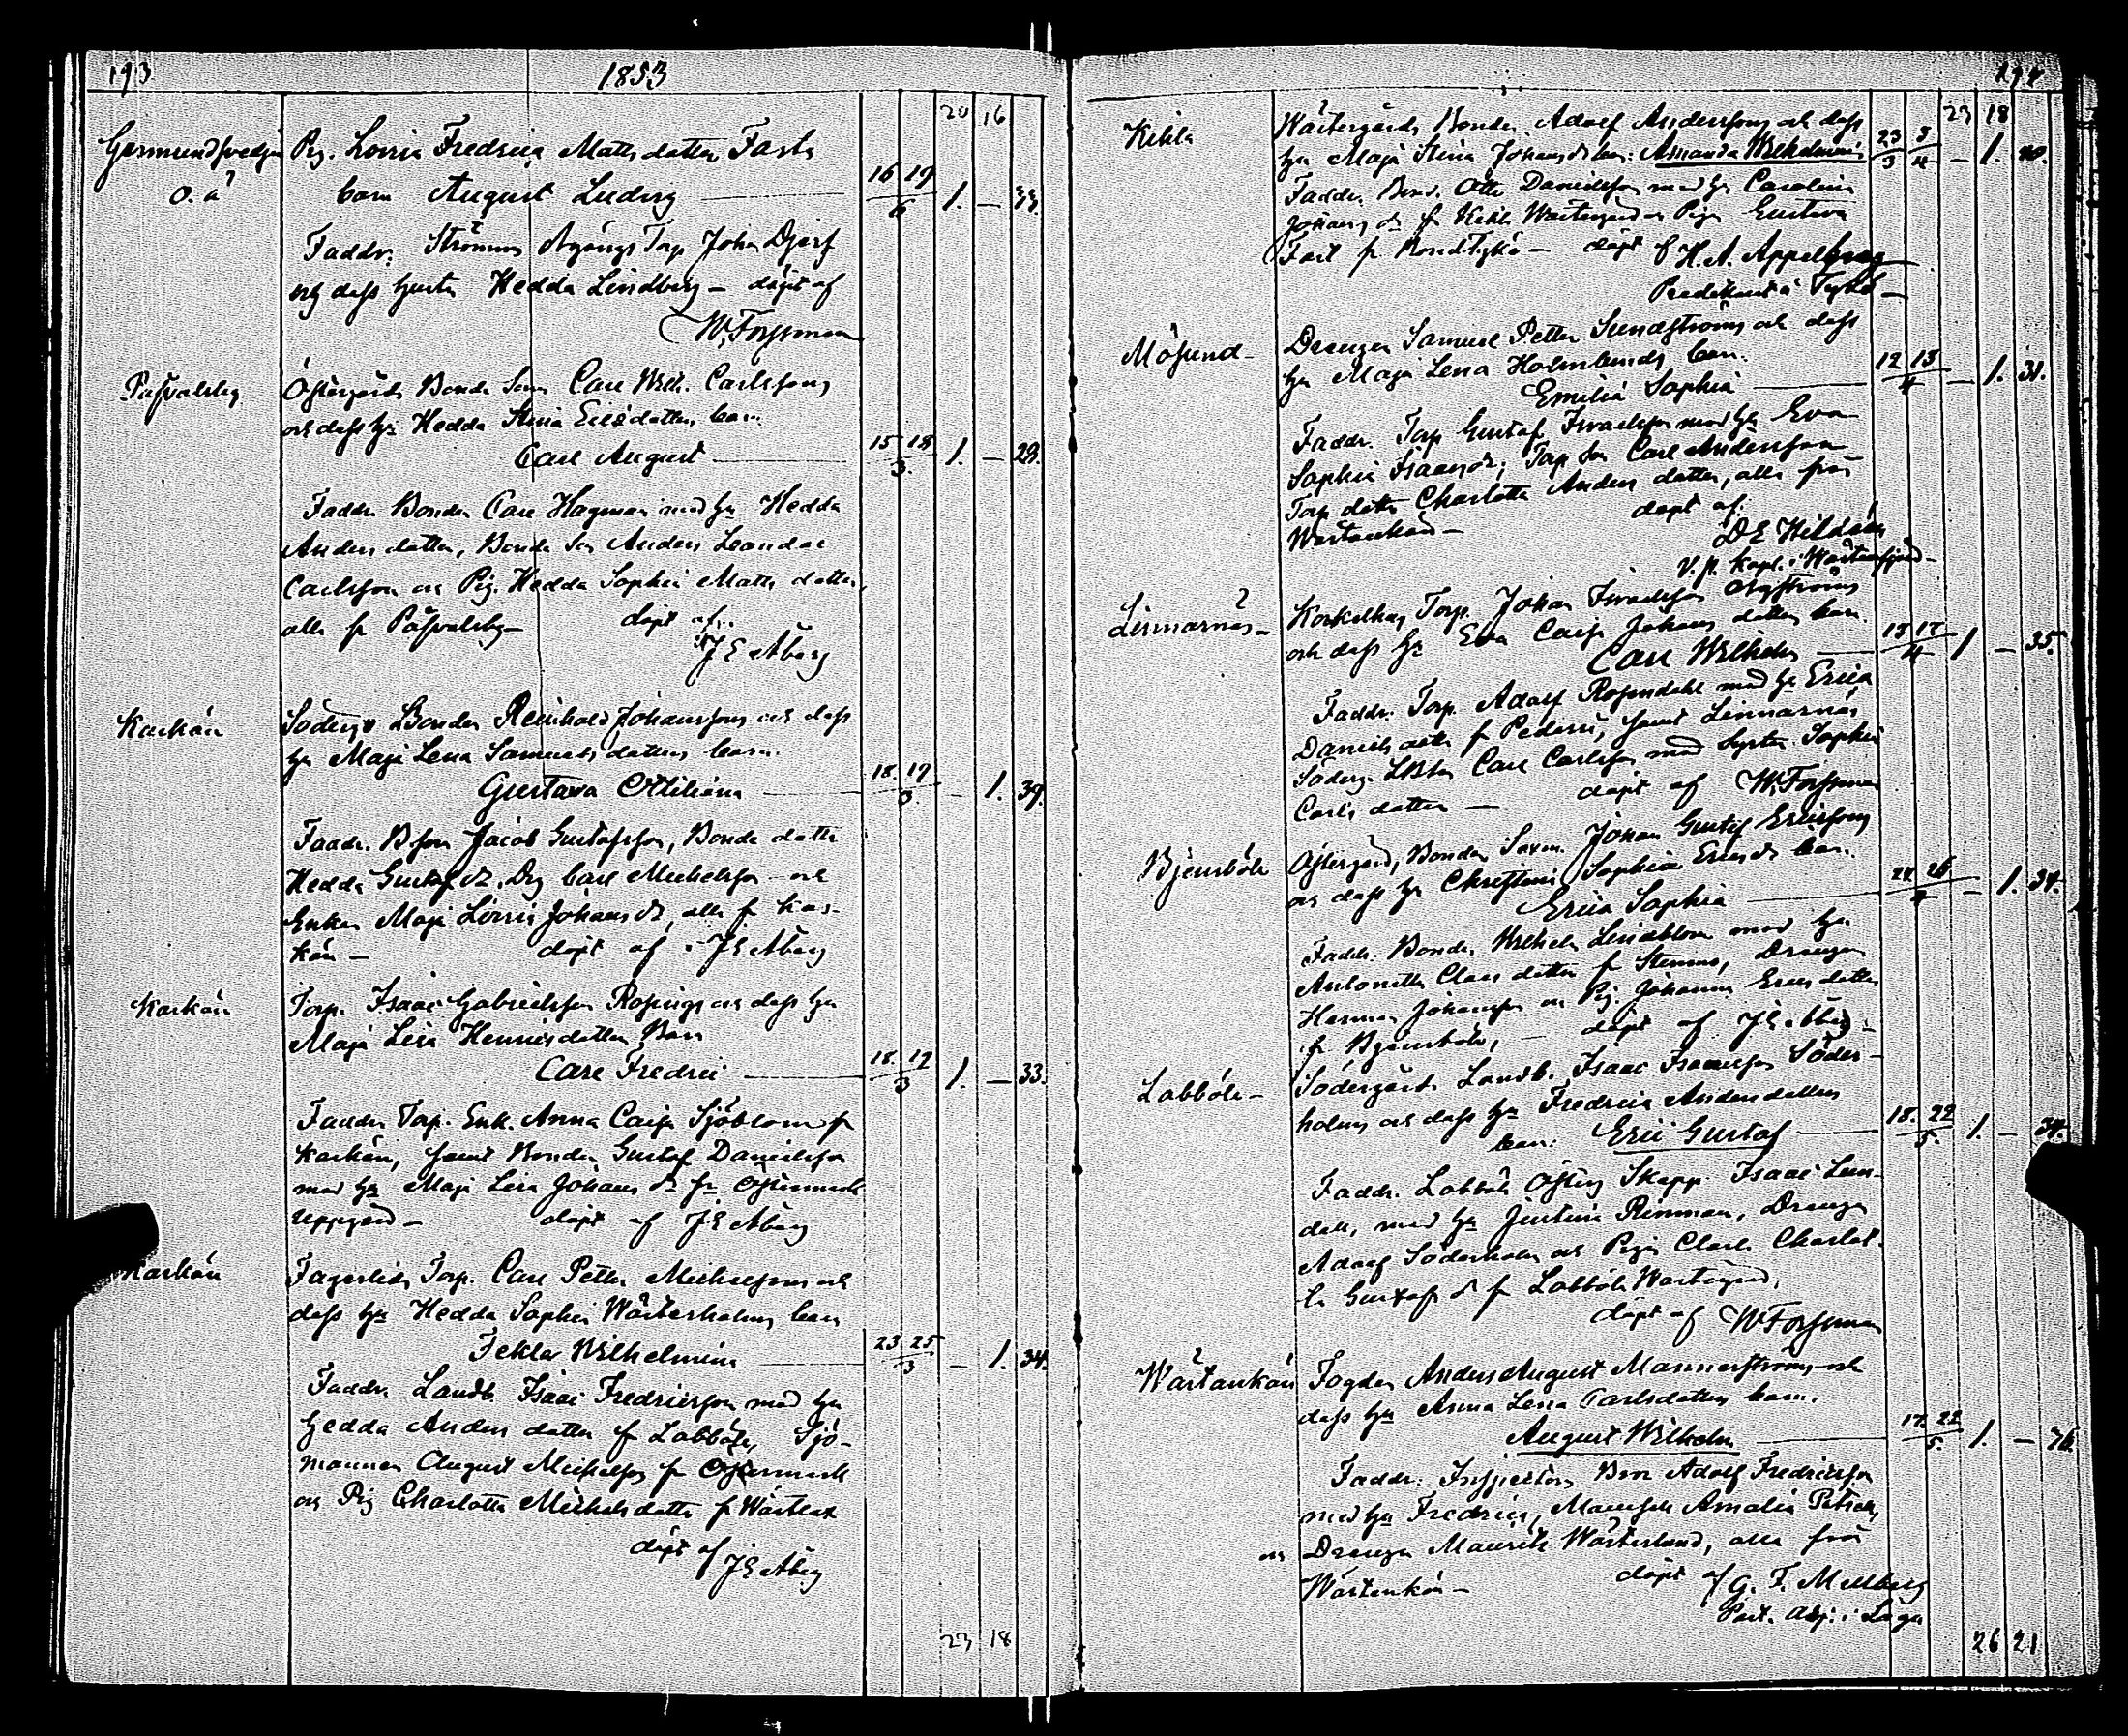 193 1853
20 16
Pig. Lovisa Fredrica Matts datter Fasta
O. ä
barn August Ludvig 16 19 / 6 1. — 33.
Faddr. Strömma Ågångs Torp. Johan Djerf
och dess hustru Hedda Lindberg — döpt af
W. Forssman
Påfvalsby Östergårds Bonde Son Carl Wilh. Carlssons
och dess hu Hedda Stina Ericsdatters barn
Carl August 15 18 / 3. 1. — 28.
Faddr Bonden Carl Hagman med hu Hedda
Anders datter, Bonde Son Anders Leander
Carlsson och Pig. Hedda Sophia Matts datter,
alla fr Påfvalsby — döpt af.
J E Åberg
Karkän Söderg. Bonden Reinhold Johanssons och dess
hu Maja Lena Samuels datters barn
Gustava Ottiliana 18. 19 / 3. — 1. 39.
Faddr. Bson Jacob Gustafsson, Bonde datter
Hedda Gustafs dr, Drg Carl Michelsson och
Enkan Maja Lovisa Johans dr, alla fr Kar-
kän — döpt af J E Åberg
Karkän Torp. Isaac Gabrielsson Rosings och dess hu
Maja Lisa Henricsdatters Barn
Carl Fredric 18. 19 / 3 1. — 33.
Faddr Torp. Enk. Anna Caisa Sjöblom fr
Karkän, samt Bonden Gustaf Danielsson
med hu Maja Lisa Johans dr fr Östermark
Uppgård — döpt af J E Åberg
Karkän Fagerlids Torp. Carl Petter Michelssons och
dess hu Hedda Sophia Wästerholms barn
Tekla Wilhelmina 23. 25 / 3 — 1. 34.
Faddr. Landb Isaac Fredricsson med hu
Hedda Anders datter fr Labböle, Sjö-
mannen August Michelsson fr Östermark
och Pig Charlotta Michels datter fr
döpt af
J E Åberg
23 18
194
23 18
Kihla Wästergårds Bonden Adolf Anderssons och dess
hu Maja Stina Johans drs barn: Amanda Wilhelmina 23 / 3 3 / 4 — 1. 40.
Faddr. Bond. Otto Danielsson med hu Carolina
Johans dr fr Kihla Wästergård och Pigan Gustava
Fast fr — döpt af H. A. Appelberg
Predikant i Tykö —
Mösund — Drengen Samuel Petter Sundströms och dess
hu Maja Lena Holmlunds barn.
Emilia Sophia 12 13 / 4 — 1. 31.
Faddr. Torp Gustaf Israelsson med hu Eva
Sophia Isaacs dr; Torp Son Carl Andersson
Torp datter Charlotta Anders datter, alla från
Wartsankän — döpt af.
V. p. Kapl. i
Linnarnäs — Torp. Johan Israelsson Nyströms
och dess hu Eva Caisa Johans datters barn.
Carl Wilhelm 15 17 / 4 1 — 35.
Faddr. Torp. Adolf Rosendahl med hu Erica
Daniels datter fr Pederså, samt Linnarnäs
Söderg. Carl Carlsson med Syster Sophia
Carls datter — döpt af W. Forssman
Bjensböle Östergård, Bonden Johan Gustaf Ericssons
och dess hu Christina Sophia Erics drs barn.
Erica Sophia 24 26 / 4 — 1. 34.
Faddr. Bonde. Wilhelm Lindblom med hu
Antonetta Claes datter fr Stenmo, Drengen
Herman Johansson och Pig. Johanna Erics datter
fr Bjensböle, — döpt af J. E. Åberg —
Labböle — Södergårds Landb. Isaac Isaacsson Söder-
holms och dess hu Fredrica Andersdatters
barn: Eric Gustaf 18. 22 / 5. 1. — 34.
Faddr. Labböle Österg Skepp. Isaac Lin-
dell, med hu Justina Rinman, Drengen
Adolf Söderholm och Pigan Clara Charlot-
ta Gustafs dr fr Labböle Wästergård,
döpt af W Forssman
Wartsankän Fogden Anders August Mannerströms och
dess hu Anna Lena Carlsdatters barn.
August Wilhelm 17. 22 / 5. 1. —
Faddr. Inspector Adolf Fredricsson
med hu Fredrica, Mamsell Amalia
och Drengen Maurits Wästerlund, alla från
Wartsankän — döpt af G. F. Mellberg
Past. Adj. i
26 21